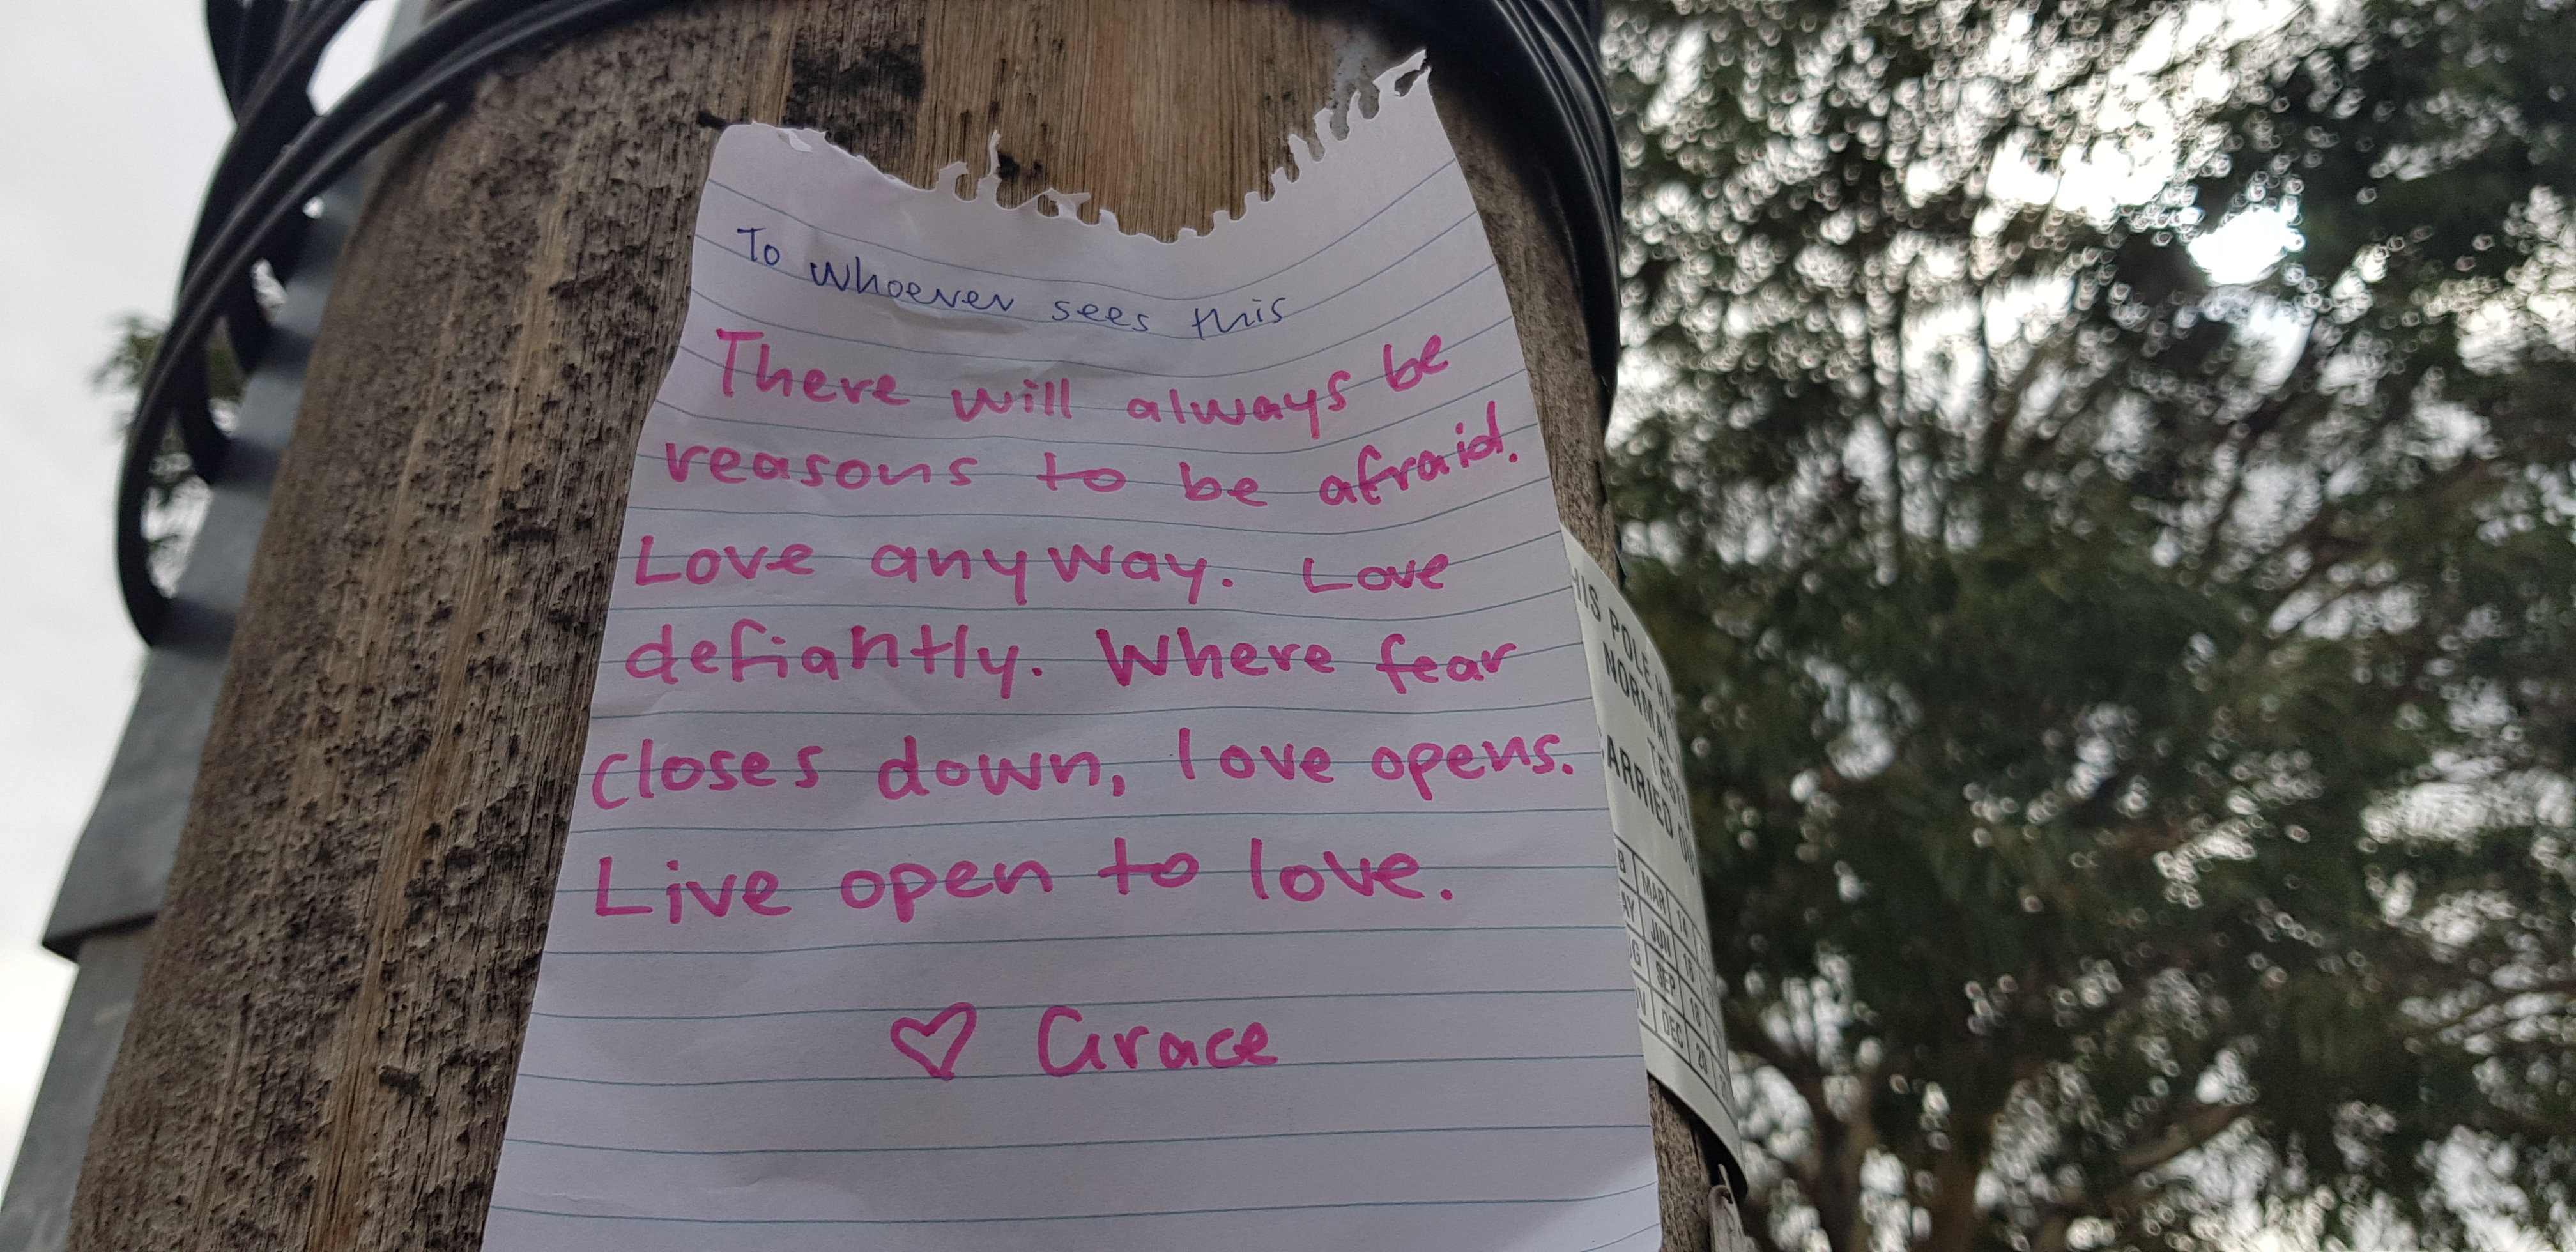 To whoever sees this
There will always be
reasons to be afraid.
Love anyway. Love
defiantly. Where fear
closes down, love opens.
Live open to love.
♡ Grace
HIS POLE HA
NORMAL
TEST
ARRIED OU
B MAR 14
AY JUN 16
G SEP 18
V DEC 20